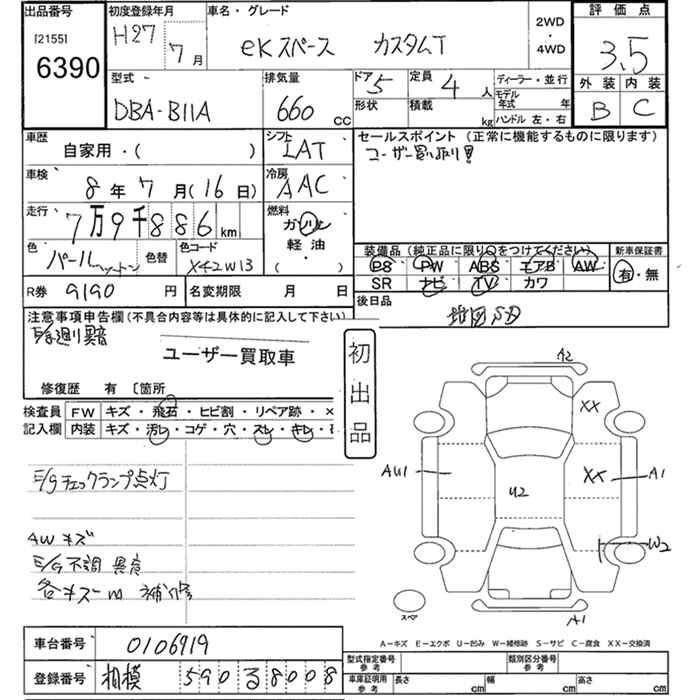 出品番号 初度登録年月 車名・グレード 2WD ・ 4WD 評価点
[2155]
6390
H27 7月 eKスペース カスタムT 3.5
外装 内装
B C
型式 排気量 ドア 定員 ディーラー・並行
DBA-B11A 660 cc 5 4人 モデル年式 年
形状 積載 kg ハンドル 左・右
車歴 シフト セールスポイント (正常に機能するものに限ります)
自家用・( ) LAT ユーザー買い取り!!
車検 冷房
8年7月(16日) AAC
走行 燃料
7万9千886km ガソリン
軽油・
( )
色 色替 色コード
パール X42W13
装備品(純正品に限り○をつけてください) 新車保証書
PS PW ABS エアB AW 有・無
SR ナビ TV カワ
R券 9190円 名変期限 月 日 後日品
地図SD
注意事項申告欄(不具合内容等は具体的に記入して下さい)
ユーザー買取車
修復歴 有 〔箇所
初出品
検査員 FW キズ・飛石・ヒビ割・リペア跡・×
記入欄 内装 キズ・汚レ・コゲ・穴・スレ・キレ・
E/gチェックランプ点灯
AWキズ
E/G不調 異音
各キズ 補修
A2
XX
AU1 U2 XX A1
W2
スペア A1
A-キズ E-エクボ U-凹み W-補修跡 S-サビ C-腐食 XX-交換済
車台番号 0106919
登録番号 相模 590 る 8008
型式指定番号 参考 類別区分番号 参考
車庫証明用 参考 長さ cm 幅 cm 高さ cm